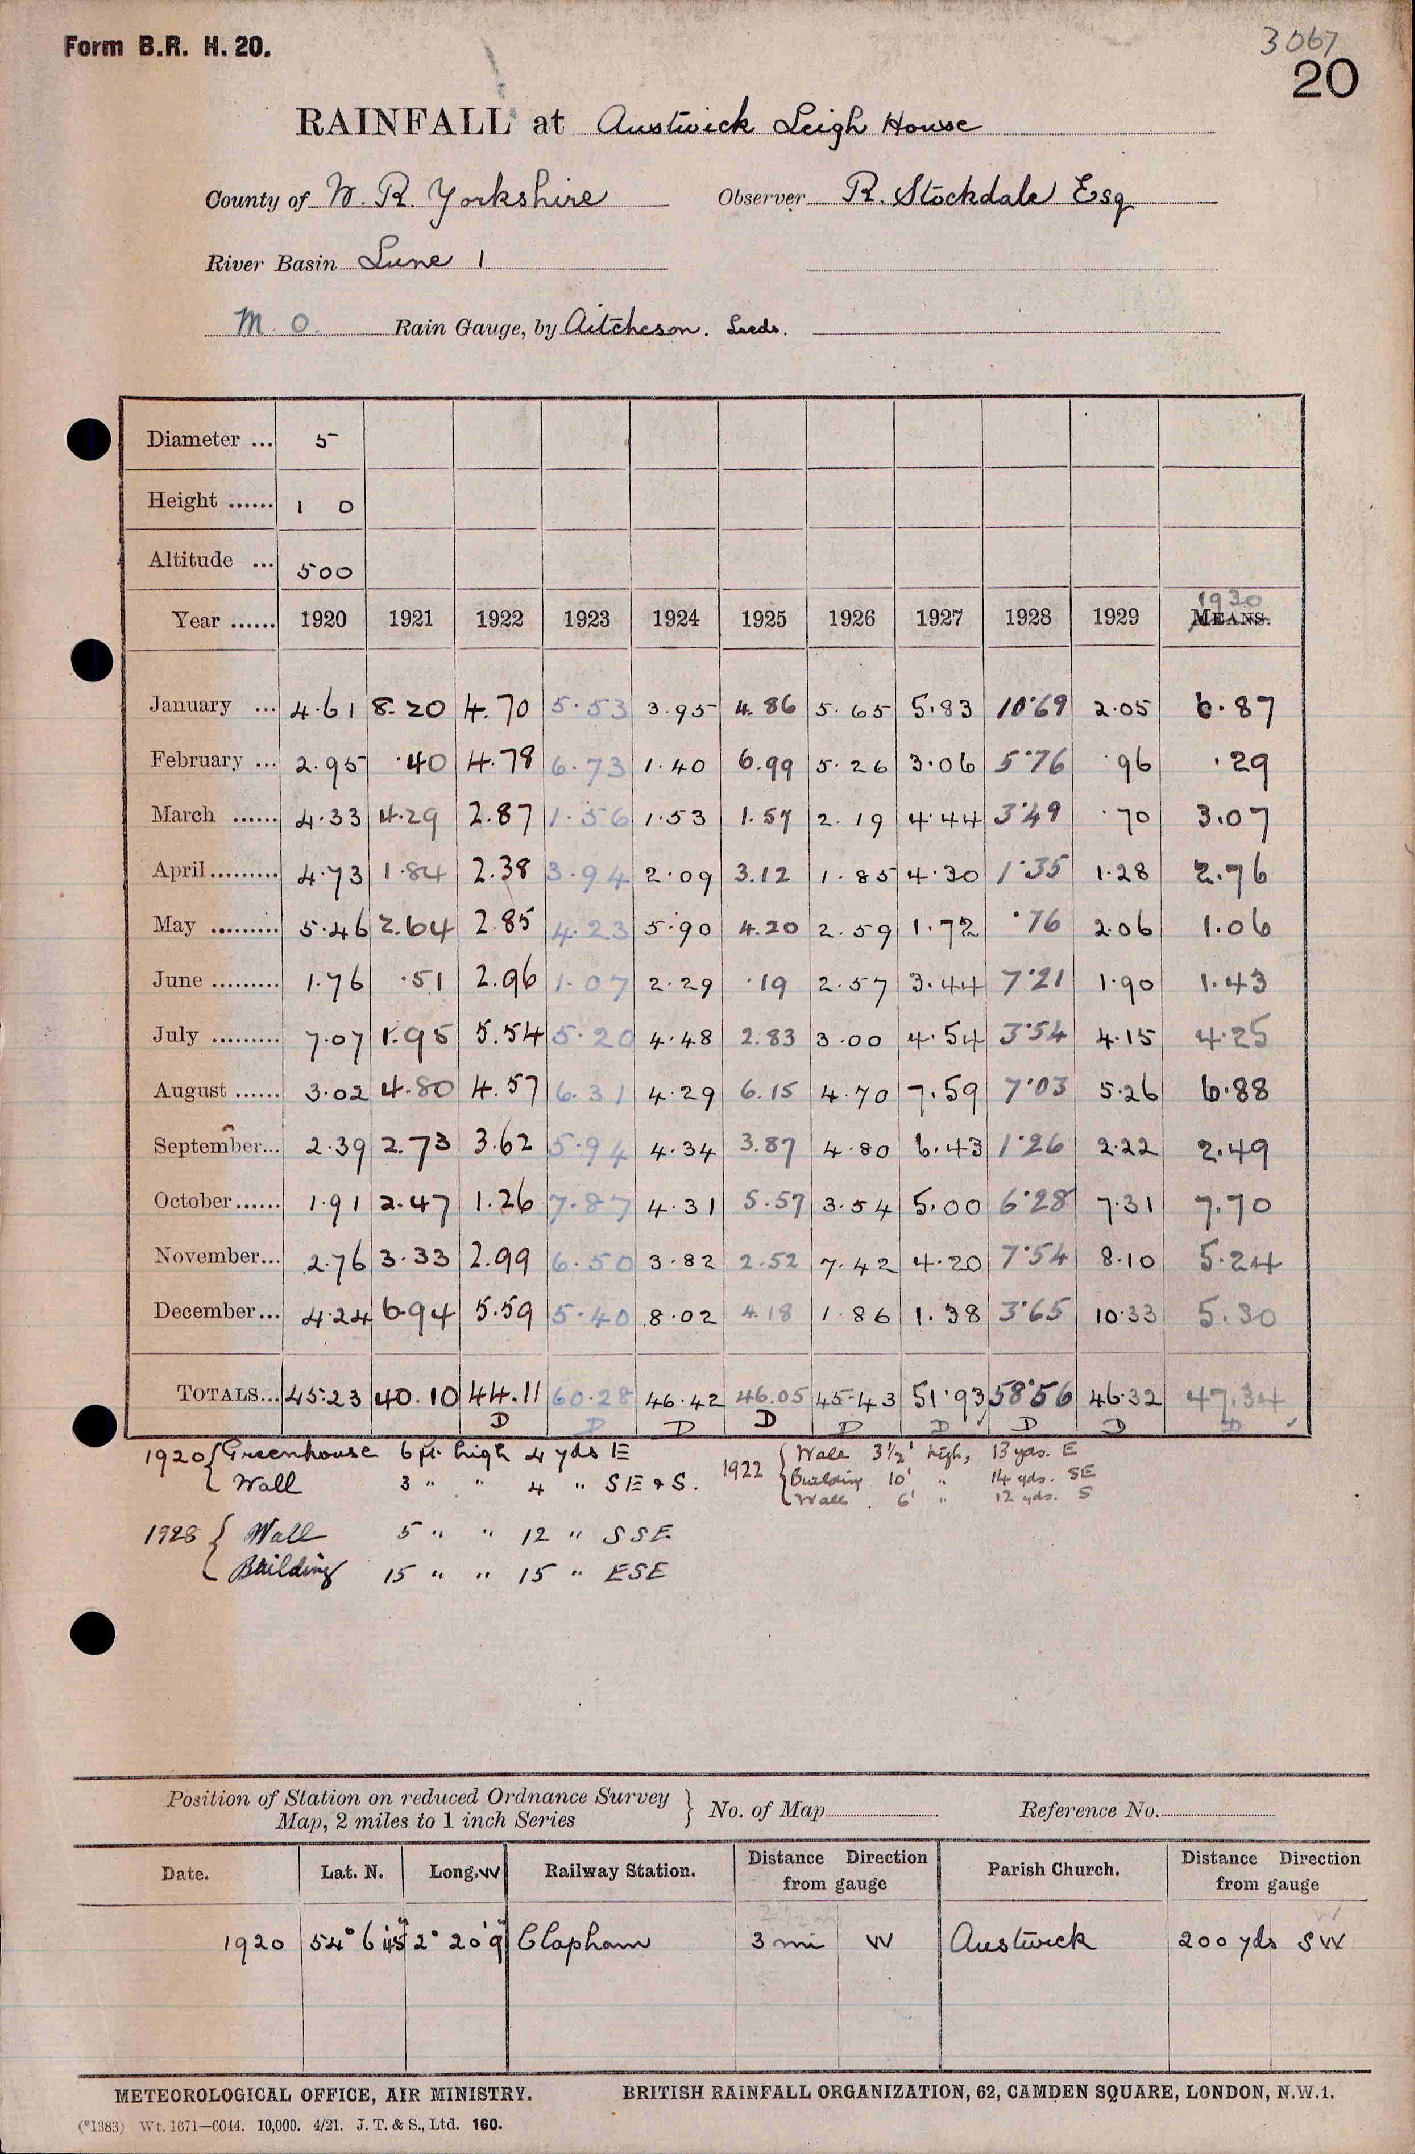 Form B.R. H. 20.
3067
20
RAINFALL at Austwick Leigh House
County of W. R. Yorkshire Observer R. Stockdale Esq
River Basin Lune 1
M. O. Rain Gauge, by Aitcheson. Leeds.
Diameter ... 5
Height ...... 1 0
Altitude ... 500
Year ...... 1920 1921 1922 1923 1924 1925 1926 1927 1928 1929 1930 MEANS.
January ... 4.61 8.20 4.70 5.53 3.95 4.86 5.65 5.83 10.69 2.05 6.87
February ... 2.95 .40 4.78 6.73 1.40 6.99 5.26 3.06 5.76 .96 .29
March ...... 4.33 4.29 2.87 1.56 1.53 1.57 2.19 4.44 3.49 .70 3.07
April......... 4.73 1.84 2.38 3.94 2.09 3.12 1.85 4.30 1.35 1.28 2.76
May ......... 5.46 2.64 2.85 4.23 5.90 4.20 2.59 1.72 .76 2.06 1.06
June ......... 1.76 .51 2.96 1.07 2.29 .19 2.57 3.44 7.21 1.90 1.43
July ......... 7.07 1.95 5.54 5.20 4.48 2.83 3.00 4.54 3.54 4.15 4.25
August ...... 3.02 4.80 4.57 6.31 4.29 6.15 4.70 7.59 7.03 5.26 6.88
September... 2.39 2.73 3.62 5.94 4.34 3.87 4.80 6.43 1.26 2.22 2.49
October...... 1.91 2.47 1.26 7.87 4.31 5.57 3.54 5.00 6.28 7.31 7.70
November... 2.76 3.33 2.99 6.50 3.82 2.52 7.42 4.20 7.54 8.10 5.24
December... 4.24 6.94 5.59 5.40 8.02 4.18 1.86 1.38 3.65 10.33 5.30
TOTALS... 45.23 40.10 44.11 60.28 46.42 46.05 45.43 51.93 58.56 46.32 47.34
D D D D D D D D D
1920 { Greenhouse 6 ft. high 4 yds E
Wall 3 " " 4 " SE & S.
1922 { Wall 3½' high, 13 yds. E
Building 10' " 14 yds. SE
Wall 6' " 12 yds. S
1928 { Wall 5 " " 12 " SSE
Building 15 " " 15 " ESE
Position of Station on reduced Ordnance Survey
Map, 2 miles to 1 inch Series } No. of Map Reference No.
Date. Lat. N. Long. W Railway Station. Distance Direction from gauge Parish Church. Distance Direction from gauge
1920 54° 6' 45" 2° 20' 9" Clapham 3 mi W Austwick 200 yds SW
METEOROLOGICAL OFFICE, AIR MINISTRY. BRITISH RAINFALL ORGANIZATION, 62, CAMDEN SQUARE, LONDON, N.W.1.
(*1383) Wt. 1671—6044. 10,000. 4/21. J. T. & S., Ltd. 160.